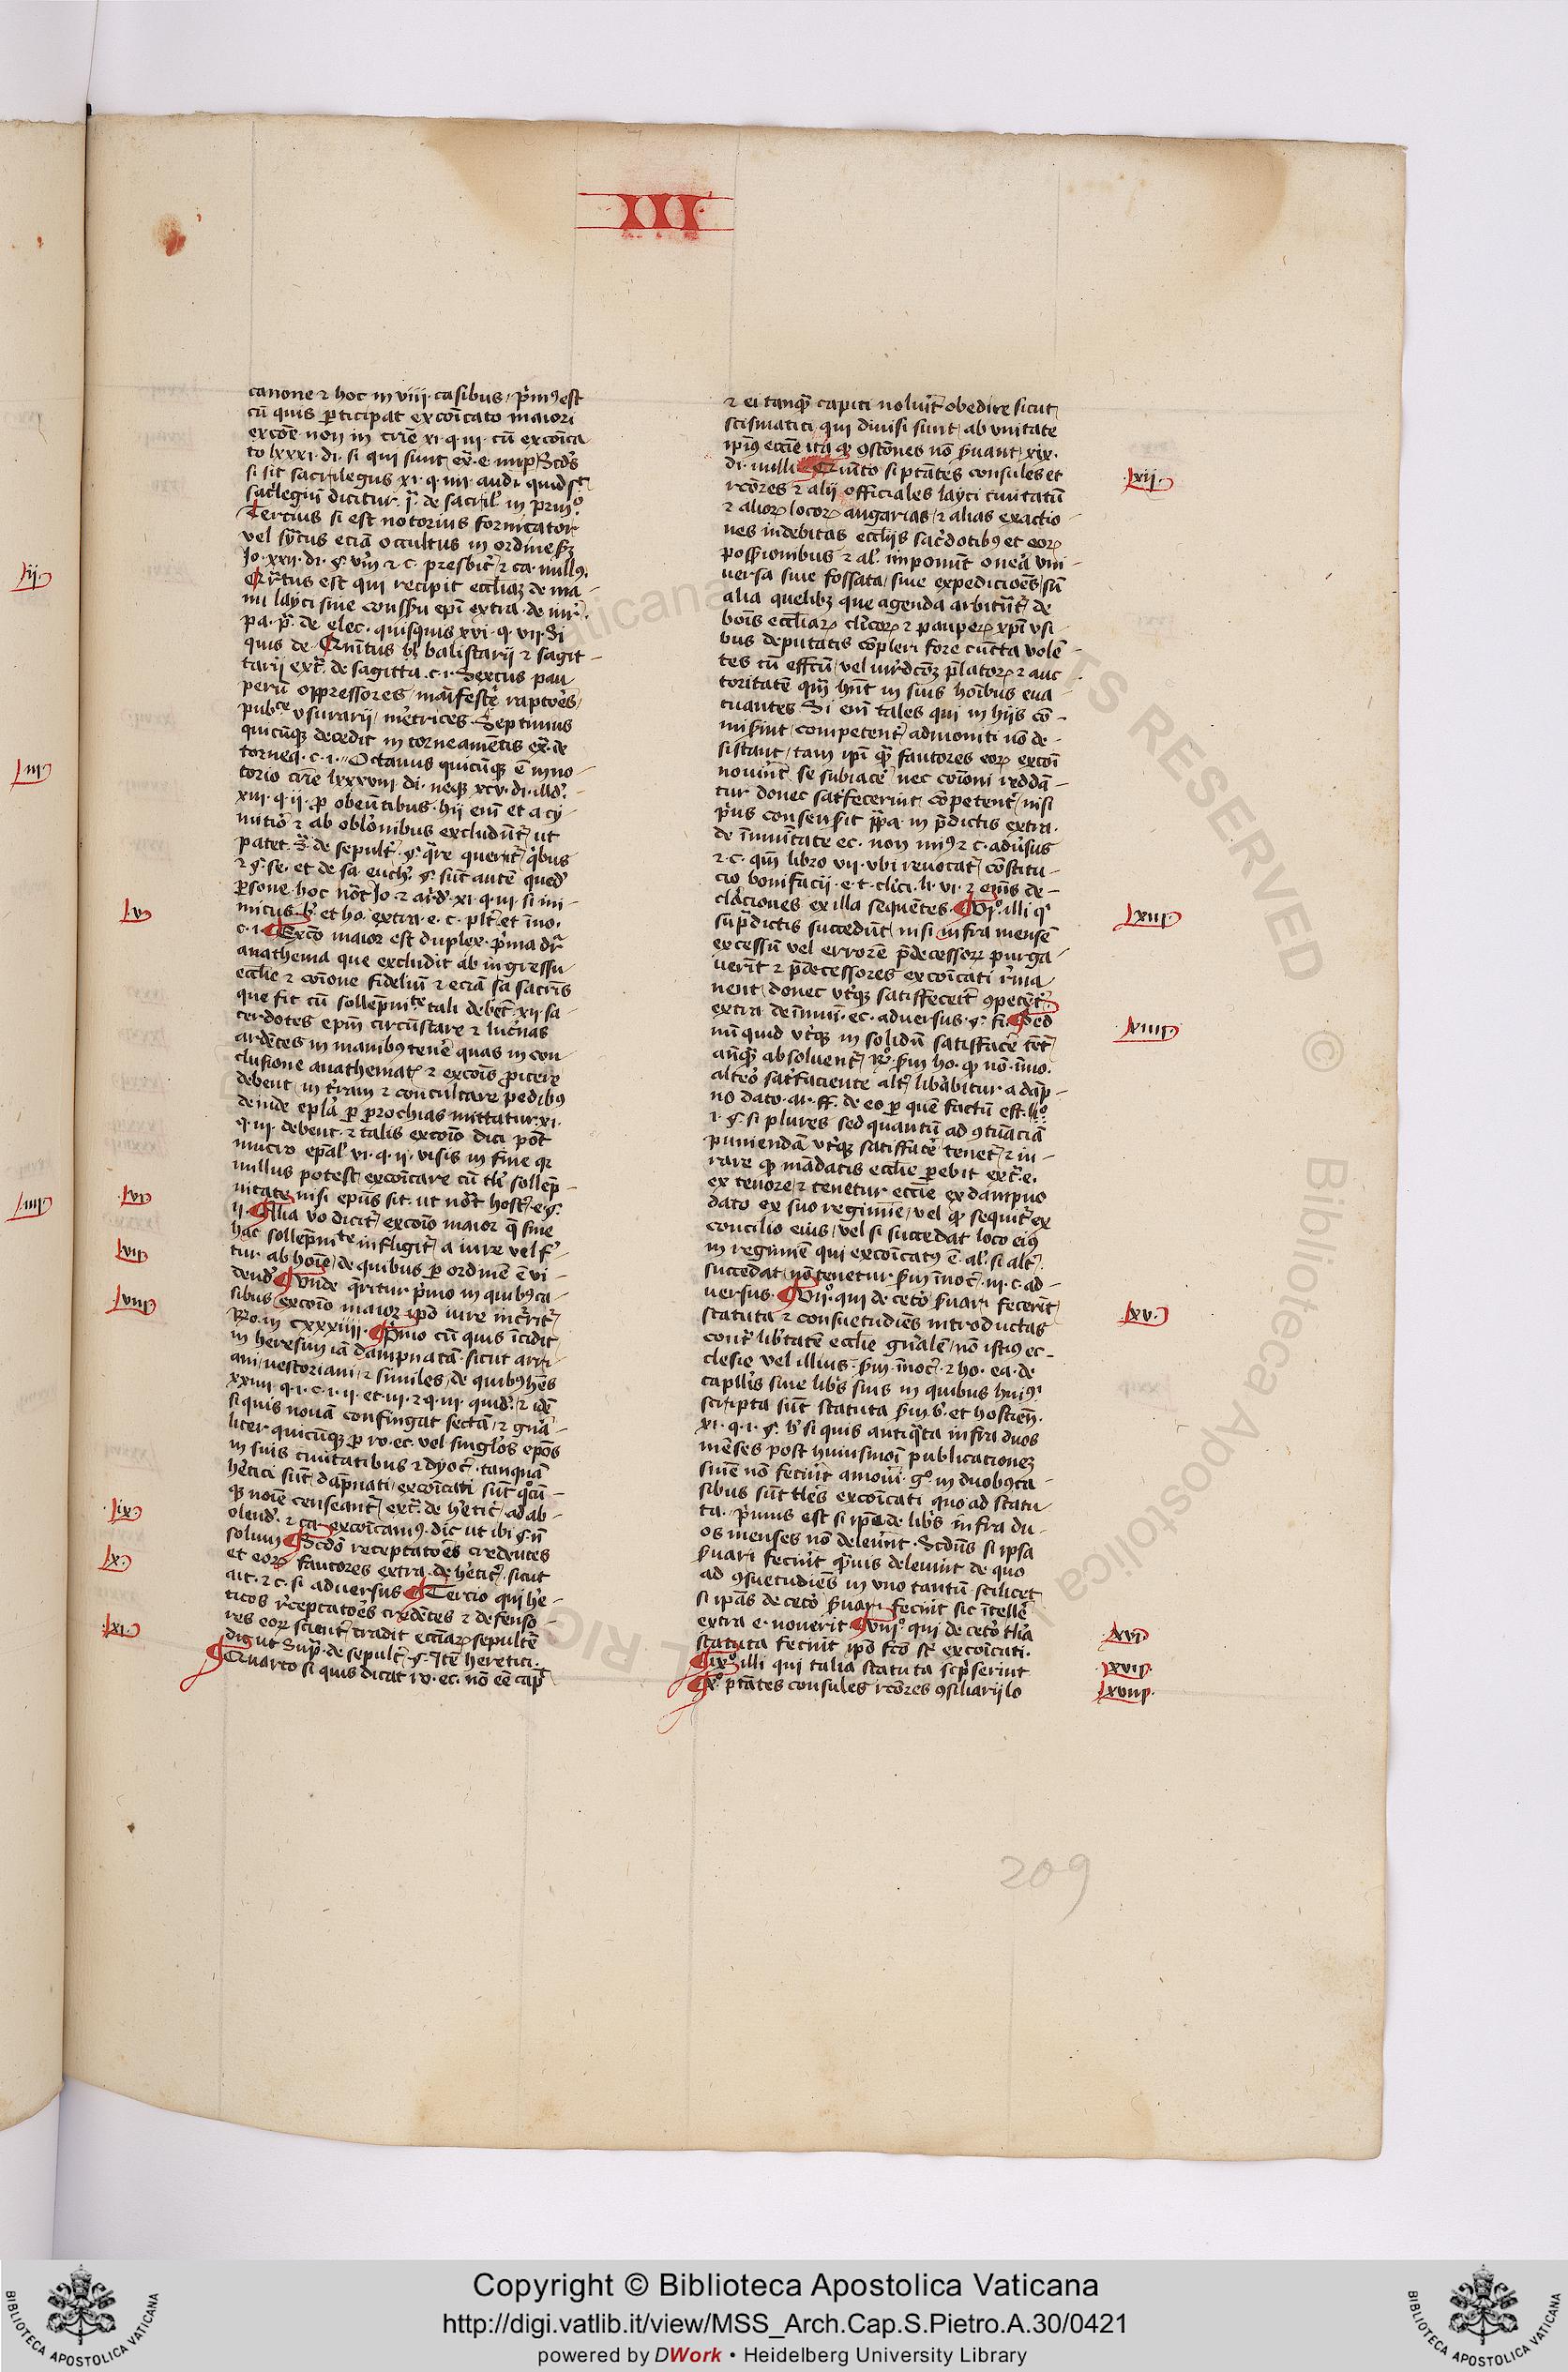 III
canone ⁊ hoc in viii casibus / p̄mꝯ est
cū quis ꝑticipat excōicato maiori
excōe non in cr̄ie xi · q · iii · cū excōica
to lxxxi · di · si qui sunt
si sit sacrilegus xi · q · iiii · audi
sacͥlegiū dicitur
Tercius si est notorius fornicator
vel eciā occultus in ordine
Jo · xxii · di · ⁊ c · presbit̄ ⁊ ca · nullꝰ
Qr̄tus est qui recipit eccliaꝫ de ma-
nu layci sine consensu ep̄i extra · de iur̄
pa · de elec · quisquis xvi · q · vii · Si
quis de Quītus balistarij ⁊ sagit-
tarij ext̄ de sagitta · c · i · Sextus pau
perū oppressores / manifeste raptores /
usurarij / meretrices · Septimus
quicūqꝫ decedit in torneamētis ex̄ de
torneā · c · i · Octauus quicūqꝫ ē in no-
torio cr̄ie lxxxviii di · neqꝫ xcv · di · illd
xiii · q · ii · ꝓ obeūtibus · hij enī et a cy-
miterio ⁊ ab oblōnibus excludūt̄ / ut
patet de sepult̄ · q̄re querit̄ / q̄bus
⁊ · se · et de sa · euch · sūt autē quedā
ꝑsone · hoc nōt Jo · ⁊ ar̄d · xi · q · iii · si ini
micus · et ho · extra · e · c · et īno ·
c · i · Excōio maior est duplex · p̄ima dr̄
anathema que excludit ab ingressu
ecclie ⁊ cōione fideliū ⁊ eciā sa sacris
que fit cū sollēpnite tali debēt · xii · sa-
cerdotes epm̄ circūstare ⁊ lucernas
ardētes in manibꝰ tenē quas in con
clusione anathematꝭ ⁊ excōis ꝓicere
debent / in t̄ram ⁊ conculcare pedibꝰ
deinde ep̄la ꝑ ꝑrochias mittatur xi ·
q · iii · debent · ⁊ talis excōio dici pōt
mucro ep̄al · vi · q · ii · visis in fine qꝛ
nullus potest / excōicare cū tli sollēp-
nitate nisi ep̄us sit · ut nōt host · e ·
ii · Alia vo dicit̄ excōio maior q̄ sine
hac sollēpnite infligit̄ / a iure vel
tur ab hoīe / de quibus ꝑ ordinē ē vi-
dend Unde q̄ritur p̄mo in quibꝰ ca-
sibus excōio maior ip̄o iure incurrit̄
Ro · in cxxxiiii · Pͥmo cū quis īcidit
in heresim iā dāmpnatā · sicut arri-
ani / nestoriani / ⁊ similes / de quibꝰ hēs
xxiiii · q · i · c · i · ii · et iii · ⁊ q · iii · quid · ⁊ idē
si quis nouā confingat sectā / ⁊ gn̄a-
liter quicūqꝫ ꝑ ro · ec · vel singlos epos
in suis ciuitatibus ⁊ dyoc · tanquā
hetici sūt / dāpnati / excōicati sūt
qꝫ noīe censeant̄ / ext̄ de hetic̄ ad ab-
olend · ⁊ ca · excōicamꝰ · dic ut ibi
solum · Scdō receptatoēs credentes
et eoꝝ fautores extra de hetic̄ / sicut
ait · ⁊ c · si aduersus · Tercio qui he-
ticos receptatoēs credētes ⁊ defenso-
res eoꝝ scient̄ / tradit eccīaꝝ sepultē
dic ut sup̄ de sepult · Itē heretici ·
Quarto si quis dicat ro · ec · nō eē caput
⁊ ei tanquā capiti noluīt / obedire sicut
scismatici / qui diuisi sunt / ab unitate
ip̄iꝰ eccīe ita qꝫ ꝯstōnes nō ẜuant / xix ·
di · nulli · Quīto si ptātes consules et
rc̄ores ⁊ alij officiales layci ciuitatū
⁊ alioꝝ locoꝝ angarias / ⁊ alias exactio-
nes indebitas eccliis sacerdotibꝰ et eoꝝ
possessionibus ⁊ al · imponūt onera uni-
uersa siue fossata / siue expediciōēs / siu
alia quelibꝫ que agenda arbitnt̄ / de
bonis eccliaꝝ clicoꝝ ⁊ pauperꝝ xp̄i usi-
bus deputatis cōpleri fore cūcta volē-
tes cū effcū / vel iurdcoꝫ p̄latoꝝ ⁊ auc-
toritatē q̄m hn̄t in suis hoībus eua-
cuantes · Si enī tales qui in hijs cō-
miserint / competent̄ / admoniti nō de-
sistant / tam ip̄i q̄ꝫ fautores eoꝝ excoi
nouint̄ se subiacē nec cōioni reddā-
tur donec satfecerint / competent̄ / nisi
p̄us consenserit p̄pa in p̄dictis extra ·
de īmunitate ec · non minꝰ ⁊ c · adūsus
⁊ c · q̄m libro vii · ubi reuocat̄ / constitu-
cio bonifacij · e · t · clīci · li · vi · ⁊ eiꝰ de-
claraciones ex illa sequētes · Vjͦ · illi qͥ
sup̄dictis succedūt / nisi infra mensē
excessū vel errorē p̄decessoꝝ purga-
uerīt ⁊ p̄decessores excōicati rema-
nent / donec utqꝫ satisfecerīt ꝯpetēt
extra de īmuni · ec · aduersus · fi · Sed
nūquid utqꝫ in solidū satisfacē tēt̄ /
anteq̄ꝫ absoluent̄ / ẜm ho · qꝫ nō · īno ·
altero satfaciente alt̄ / libabitur a dāp-
no dato · ar · ff · de eo ꝑ quē factū est ·
i · si plures sed quantū ad ꝯtuaciā
puniendā utqꝫ satisfacē tenet̄ / ⁊ iu-
rare qꝫ mādatis ecclie ꝑebit ext̄ · e ·
ex tenore / ⁊ tenetur eccīe ex dampno
dato ex suo regimie / vel qꝫ sequit̄ ex
concilio eius / vel si succedat loco eiꝰ
in regimē qui excōicatꝰ ē · al · si alt̄
succedat / nō tenetur ẜm īnoc̄ · iii · c · ad-
uersus · Vijͦ · qui de cetō ẜuari fecerīt
statuta ⁊ consuetudīes introductas
contͣ libtatē ecclie gn̄alē / nō istiꝰ ec-
clesie vel illius · ẜm īnoc̄ · ⁊ ho · ea de
capllis siue libs suis in quibus huiꝰ
scripta sūt statuta ẜm · et hostien ·
xi · q · i · si quis antiqͥta infra duos
mēses post huiusmoi publicationeꝫ
sinē nō fecīt amoui · gͦ · in duobꝰ ca-
sibus sūt tles excōicati quo ad statu-
ta · p̄mus est si ip̄a de libs infra du-
os menses nō deleūnt · Scdūs si ipsa
ẜuari fecīt q̄uis deleuīt de quo
ad ꝯsuetudīes in uno tantū · scilicet
si ip̄as de cetō ẜuari fecīt sic ītellē
extra e · nouerit · Viijͦ · qui de cetō tlia
statuta fecīt ip̄o fcō sūt excōicati ·
ixͦ · illi qui talia statuta scp̄serint
xͦ · ptātes consules rc̄ores ꝯsiliarij lo
lii
liii
liiii
lv
lvi
lvii
lviii
lix
lx
lxi
lxii
lxiii
lxiiii
lxv
lxvi
lxvii
lxviii
209
Copyright © Biblioteca Apostolica Vaticana
http://digi.vatlib.it/view/MSS_Arch.Cap.S.Pietro.A.30/0421
powered by DWork • Heidelberg University Library
BIBLIOTECA APOSTOLICA VATICANA
BIBLIOTECA APOSTOLICA VATICANA